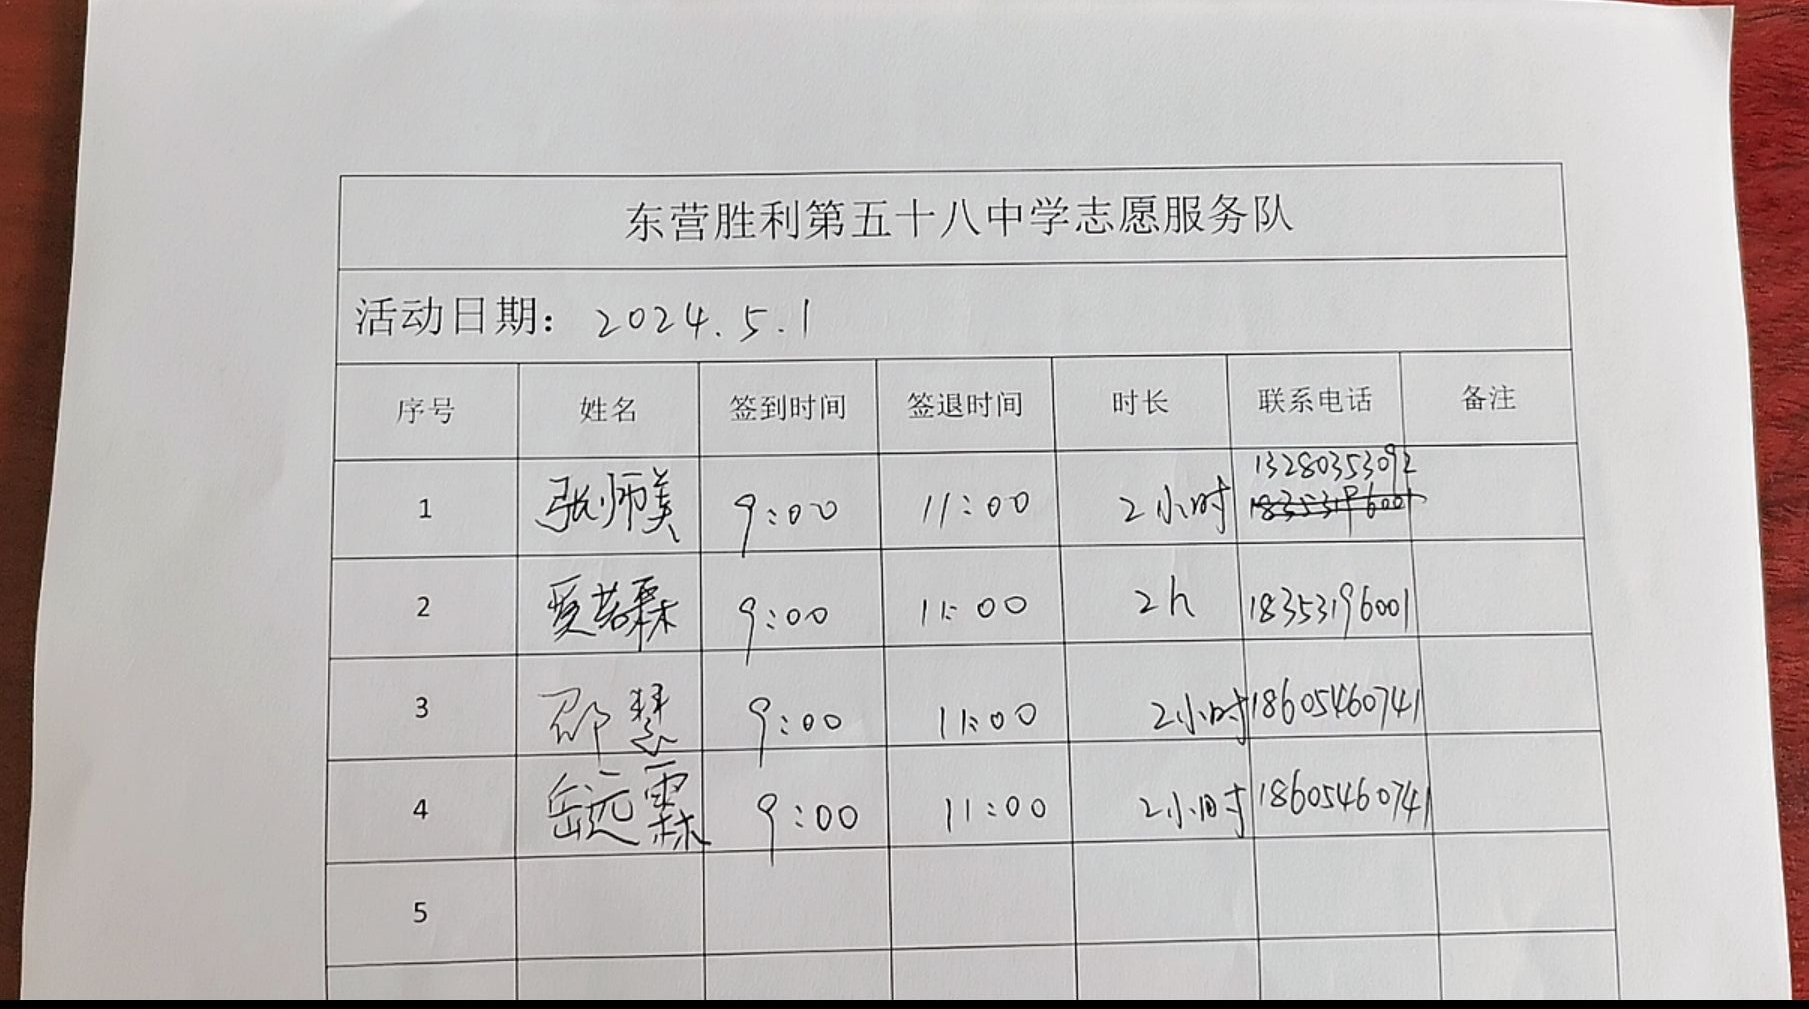 东营胜利第五十八中学志愿服务队
活动日期：2024.5.1
序号 姓名 签到时间 签退时间 时长 联系电话 备注
13280353092
1 张师美 9:00 11:00 2小时 18353196001
2 若霖 9:00 11:00 2h 18353196001
3 邵慧 9:00 11:00 2小时 18605460741
4 岳远霖 9:00 11:00 2小时 18605460741
5